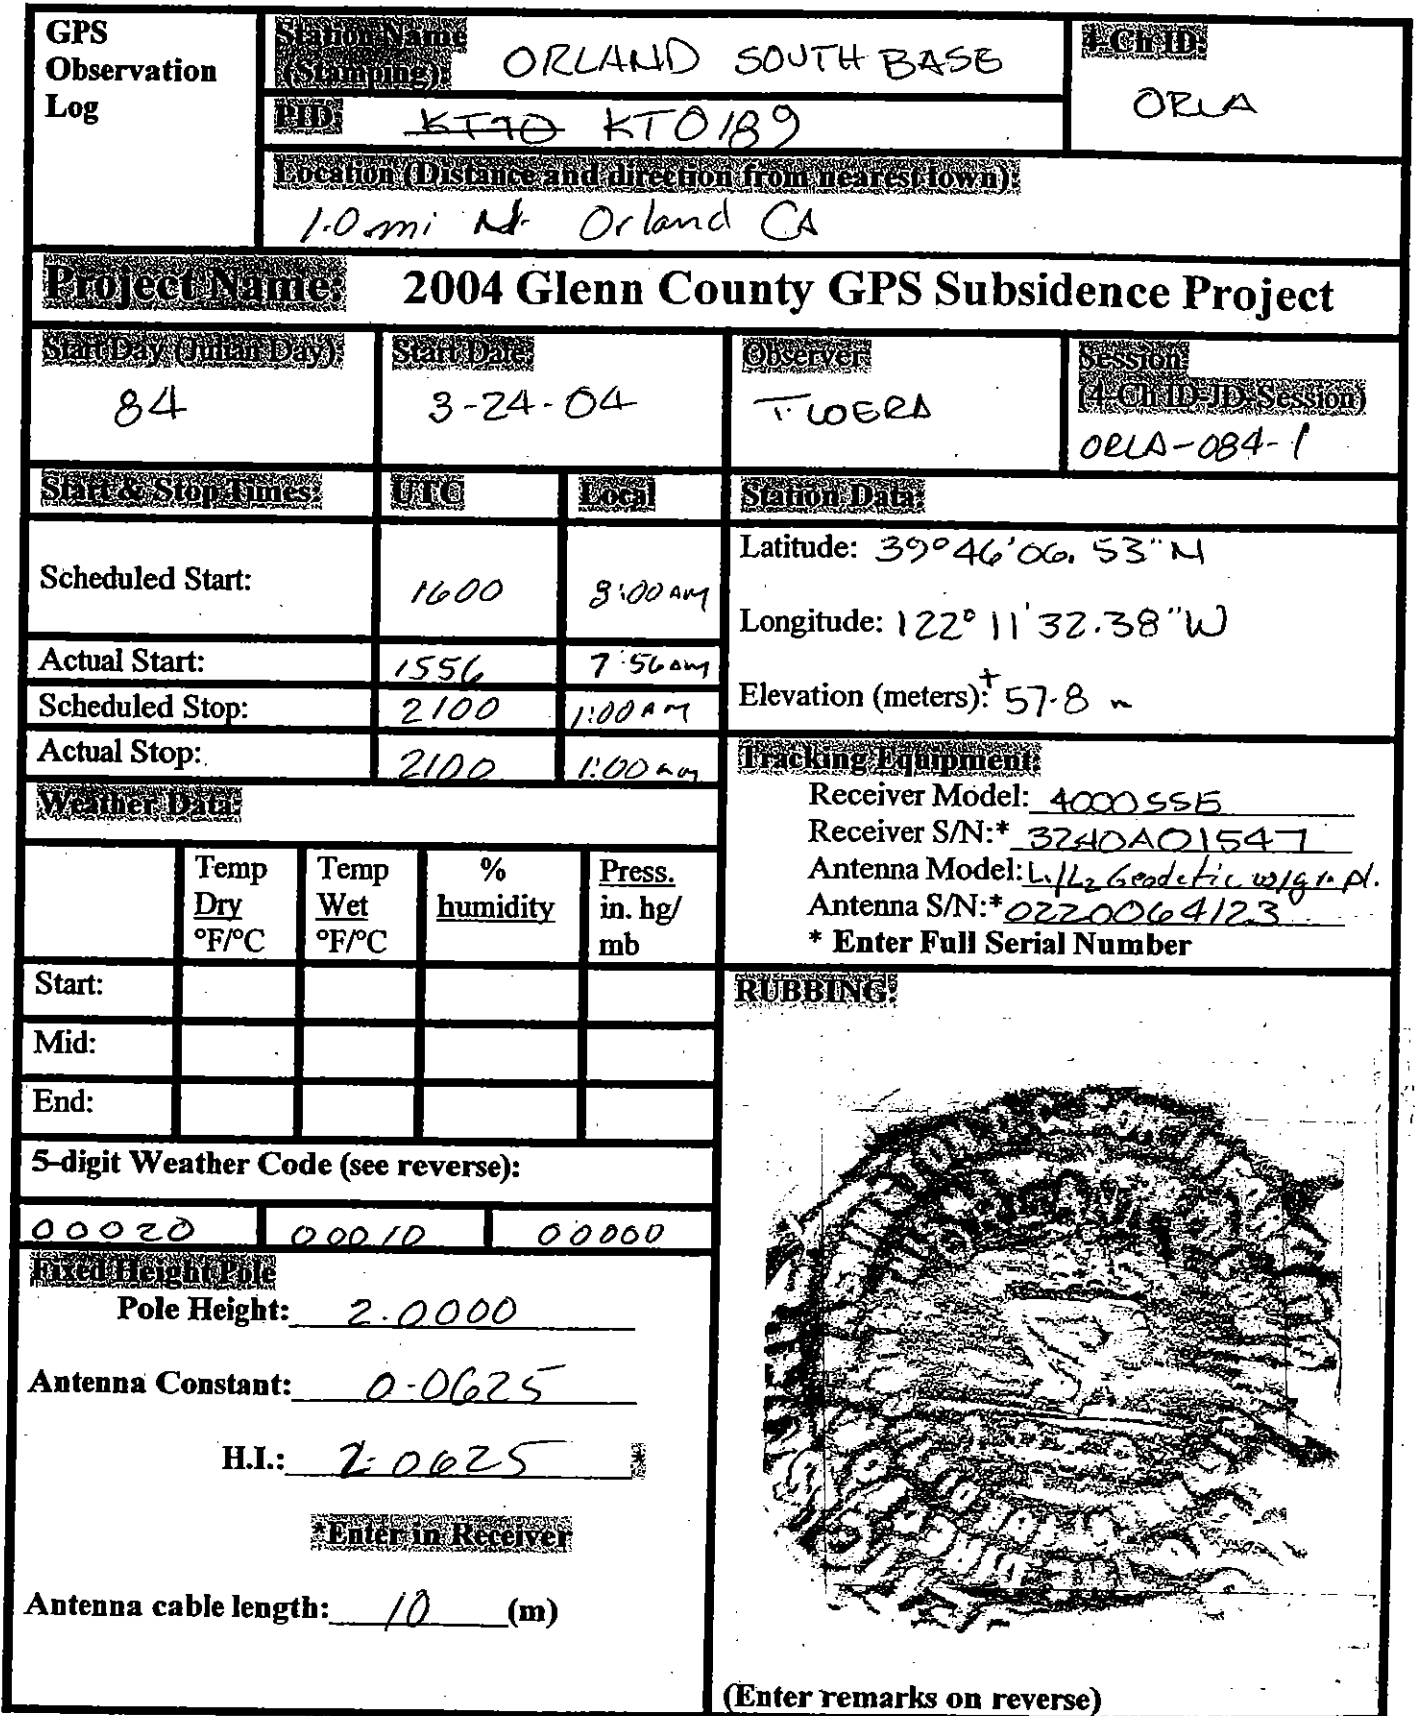 GPS
Observation
Log
Station Name
(Stamping):
ORLAND SOUTH BASE
4-Ch ID:
ORLA
PID: KT70 KT0189
Location (Distance and direction from nearest town):
1.0 mi N. Orland CA
Project Name: 2004 Glenn County GPS Subsidence Project
Start Day (Julian Day):
84
Start Date:
3-24-04
Observer
Session:
(4-Ch ID-JD-Session)
ORLA-084-1
Start & Stop Times: UTC Local
Scheduled Start: 1600 8:00 AM
Actual Start: 1556 7:56 am
Scheduled Stop: 2100 1:00 AM
Actual Stop: 2100 1:00 am
Station Data:
Latitude: 39°46'06.53"N
Longitude: 122°11'32.38"W
Elevation (meters): + 57.8 m
Tracking Equipment:
Receiver Model: 4000SSE
Receiver S/N:* 3240A01547
Antenna Model: L1/L2 Geodetic w/gr. pl.
Antenna S/N:* 0220064123
* Enter Full Serial Number
Weather Data:
Temp
Dry
°F/°C
Temp
Wet
°F/°C
%
humidity
Press.
in. hg/
mb
Start:
Mid:
End:
5-digit Weather Code (see reverse):
00020 00010 00000
Fixed Height Pole
Pole Height: 2.0000
Antenna Constant: 0.0625
H.I.: 2.0625 *
*Enter in Receiver
Antenna cable length: 10 (m)
RUBBING:
(Enter remarks on reverse)